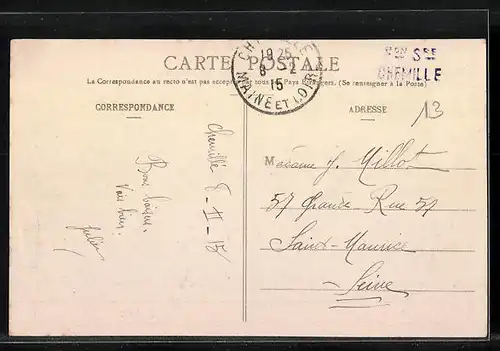 CARTE POSTALE
La Correspondance au recto n'est pas acceptée par tous les Pays Étrangers. (Se renseigner à la Poste)
CORRESPONDANCE
ADRESSE
19 25
8 - 2
15
MAINE ET LOIRE
CHEMILLE
13
Chemillé 8-II-15
Bons baisers
Vous tous.
Julien
Madame J. Millot
57 Grande Rue 57
Saint-Maurice
- Seine